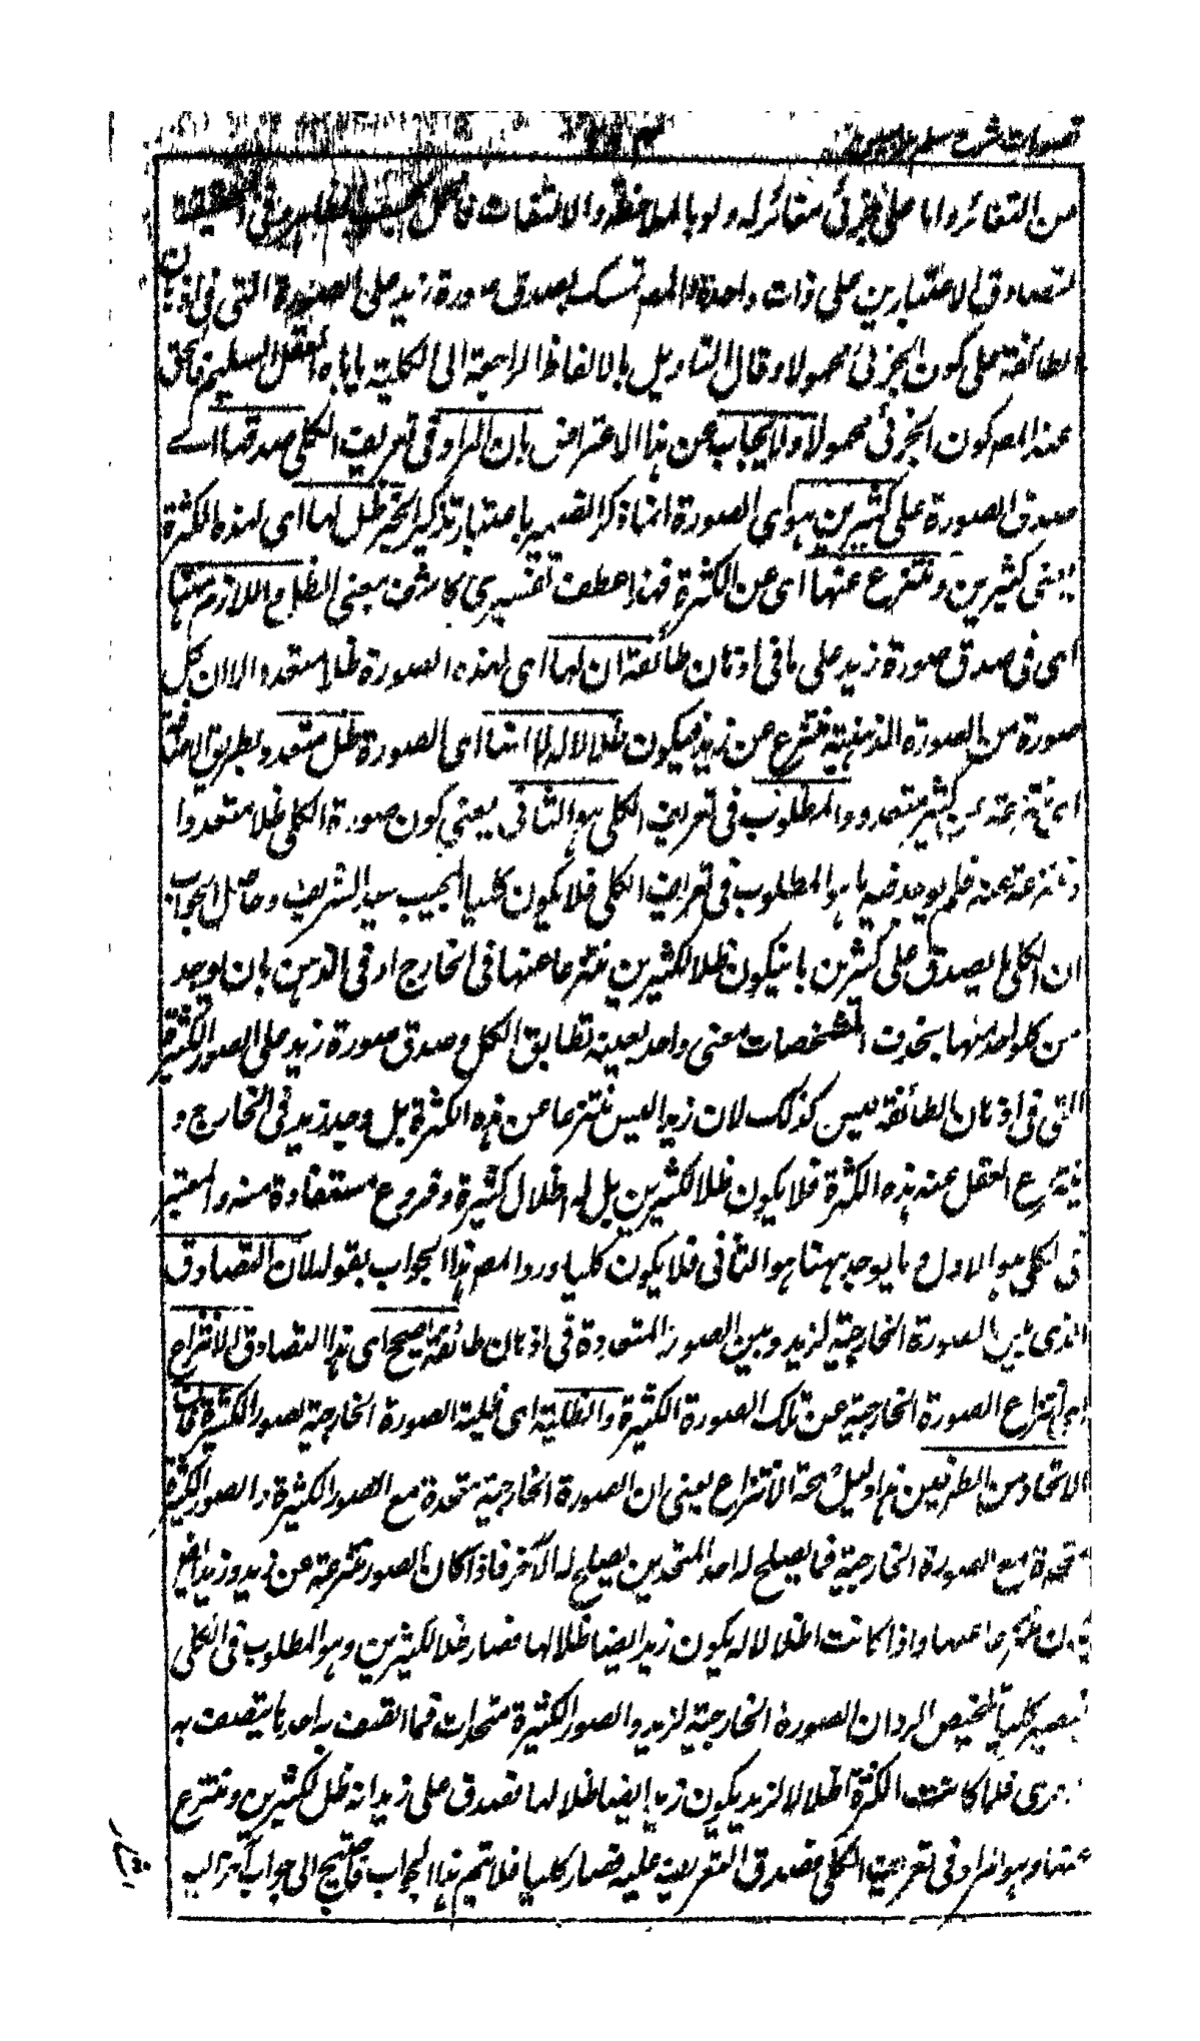 تصورات شرح سلم
من التغائر واما على جزئي مغائر له ولو بالملاحظة والالتفات فالحمل
تصادق الاعتبارين على ذات واحدة المص تمسك بصدق صورة زيد على الصورة التي في اذهان
الطائفة على كون الجزئي محمولا وقال التاويل بالالفاظ الراجعة الى الكلية ياباه العقل السليم فالحق
عند المص كون الجزئي محمولا ولا يجاب عن هذا الاعتراض بان المراد في تعريف الكلي صدقها اے
صدق الصورة على كثيرين هو اي الصورة انما ذكر الضمير باعتبار تذكير الخبر ظل لها اى لهذه الكثرة
يعنى كثيرين ومنتزع عنها اى عن الكثرة فهذا عطف تفسيري كاشف بمعنى الظل و اللازم ههنا
اى فى صدق صورة زيد على ما فى اذهان طائفة ان لها اى لهذه الصورة ظلا متعددا لا ان كل
صورة من الصورة الذهنية منتزع عن زيد فيكون ظلالا له لا انها اى الصورة ظل متعدد بطريق الاضافة
اى منتزعة عن كثير متعدد والمطلوب فى تعريف الكلي هو الثاني يعني كون صورة الكلي ظلا متعددا
ومنتزعة عنه فلم يوجد فيه ما هو المطلوب فى تعريف الكلي فلا يكون كليا المجيب سيد الشريف وحاصل الجواب
ان الكلي ما يصدق على كثيرين بان يكون ظلا لكثيرين منتزعا عنها فى الخارج او فى الذهن بان يوجد
من كل واحد منها بحذف المشخصات معنى واحد بعينه تطابق الكل وصدق صورة زيد على الصور الكثيرة
التي فى اذهان الطائفة ليس كذلك لان زيدا ليس منتزعا من هذه الكثرة بل وجد زيد فى الخارج و
ينتزع العقل عنه هذه الكثرة فلا يكون ظلا لكثيرين بل له اظلال كثيرة وفروع مستفادة منه والمعتبر
فى الكلي هو الاول وما يوجد ههنا هو الثاني فلا يكون كليا ورد المص هذا الجواب بقوله لان التصادق
الذى بين الصورة الخارجية لزيد وبين الصور المتعددة فى اذهان طائفة يصحح اى هذا التصادق الانتزاع
اى انتزاع الصورة الخارجية عن تلك الصورة الكثيرة والظلية اى ظلية الصورة الخارجية لصور الكثيرة فان
الاتحاد من الطرفين هذا دليل صحة الانتزاع يعنى ان الصورة الخارجية متحدة مع الصور الكثيرة والصور الكثيرة
متحدة مع الصورة الخارجية فما يصلح له احد المتحدين يصلح له الآخر فاذا كان الصور منتزعة عن زيد وزيد ايضا
يكون منتزعا عنها واذا كانت اظلالا له يكون زيد ايضا ظلا لها فصار ظلا لكثيرين وهو المطلوب فى الكلي
فيصير كليا تلخيص الرد ان الصورة الخارجية لزيد والصور الكثيرة متحدات فما اتصف به احدها يتصف به
الاخرى فلما كانت الكثرة اظلالا لزيد يكون زيد ايضا ظلا لها فصدق على زيد انه ظل لكثيرين ومنتزع
عنها وهو المراد فى تعريف الكلي فصدق التعريف عليه فصار كليا فلا يتم هذا الجواب فاحتيج الى جواب آخر اليه